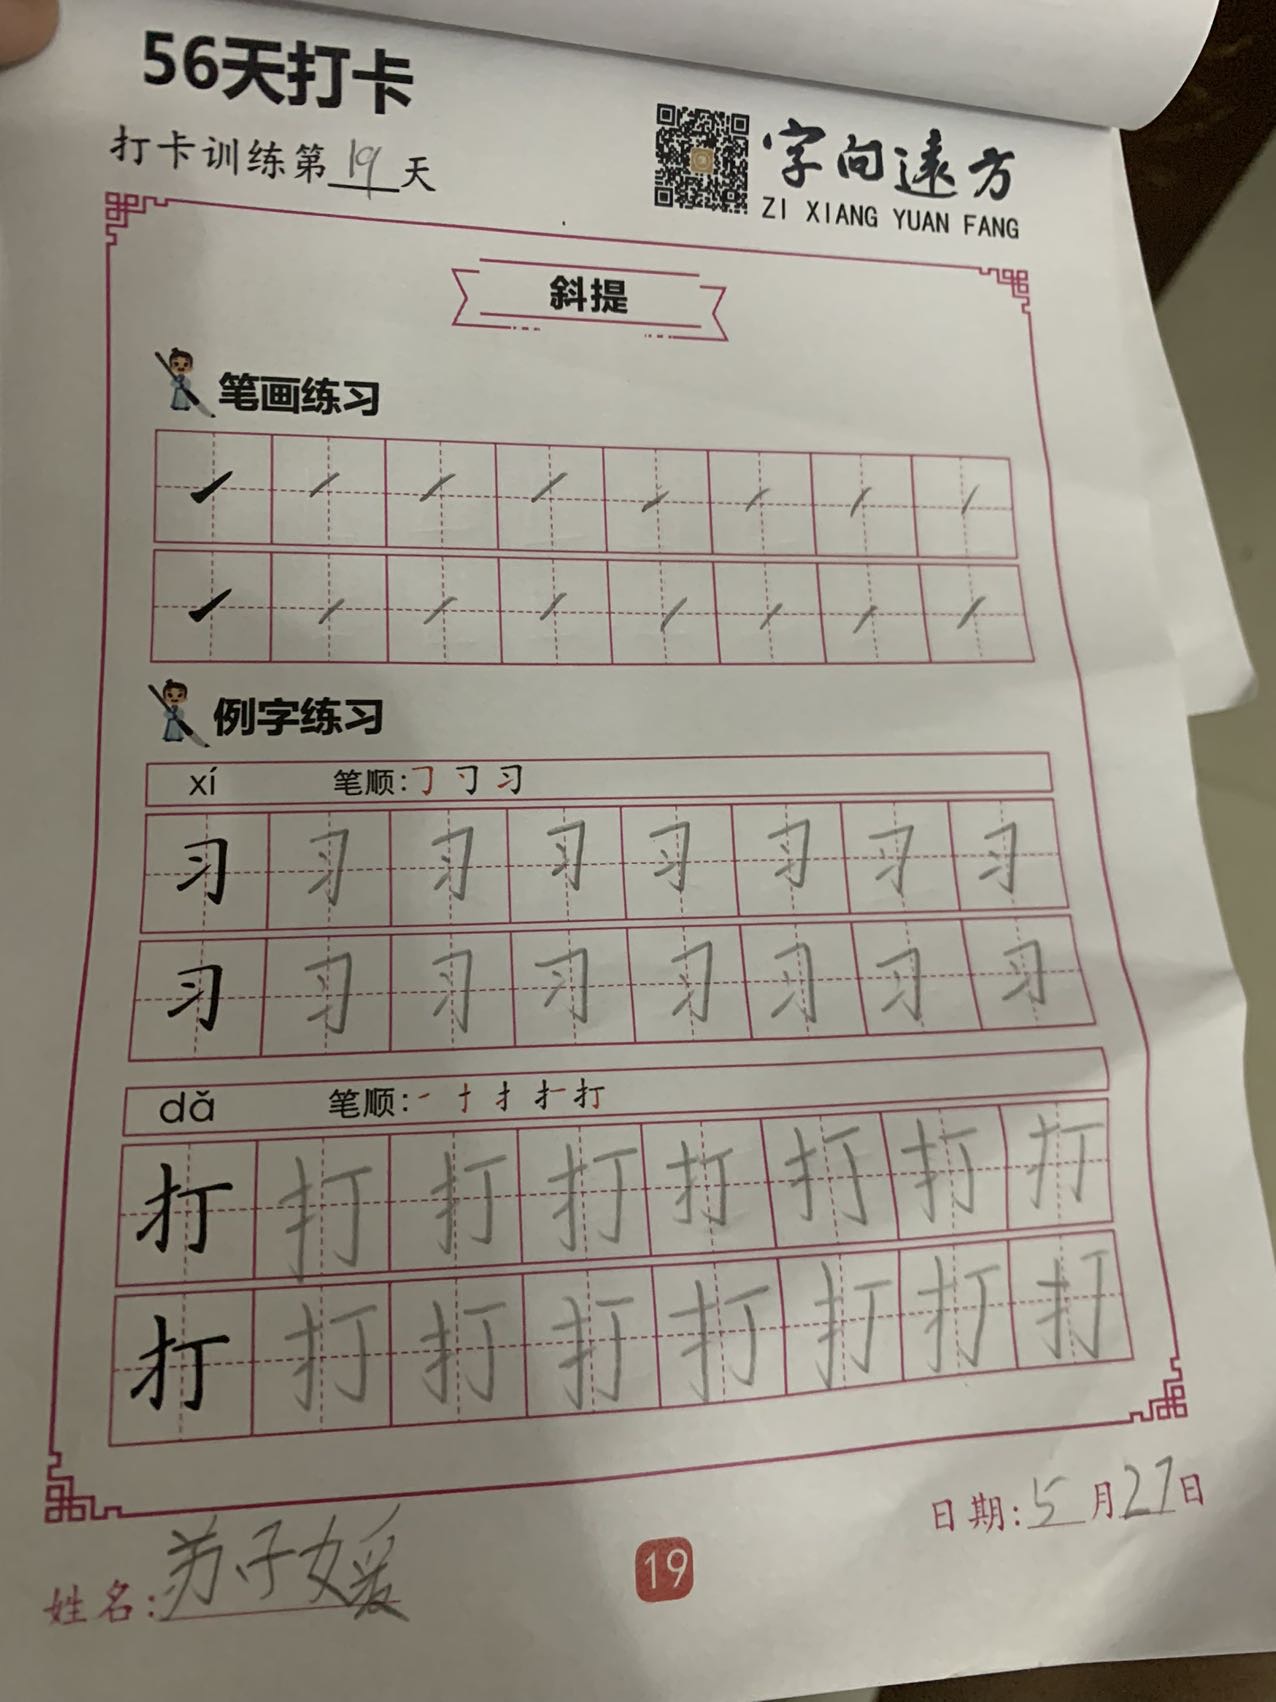 56天打卡
打卡训练第19天
字向远方
ZI XIANG YUAN FANG
斜提
笔画练习
例字练习
xí 笔顺:㇆ 刁 习
习 习 习 习 习 习 习 习
习 习 习 习 习 习 习 习
dǎ 笔顺:一 十 扌 扩 打
打 打 打 打 打 打 打 打
打 打 打 打 打 打 打 打
日期:5月27日
姓名:苏子媛
19